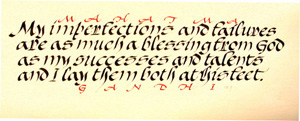 MAHATMA
My imperfections and failures
are as much a blessing from God
as my successes and talents
and I lay them both at his feet.
GANDHI